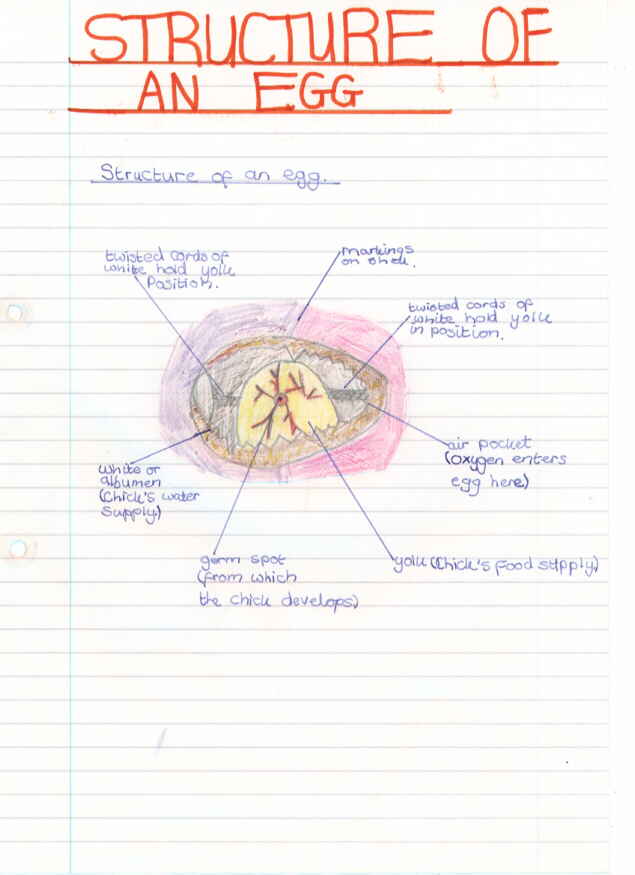 STRUCTURE OF
AN EGG
Structure of an egg.
twisted cords of
white hold yolk
Position.
markings
on shell.
twisted cords of
white hold yolk
in position.
air pocket
(oxygen enters
egg here)
white or
albumen
(Chick's water
supply)
germ spot
(from which
the chick develops)
yolk (Chick's food supply)